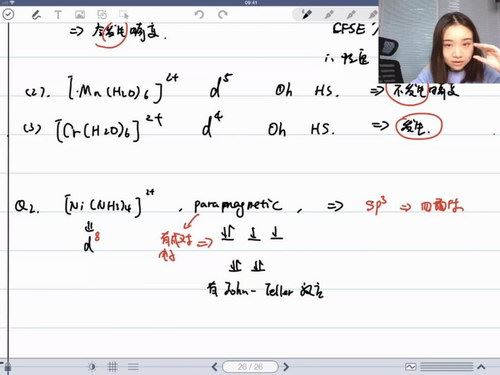 09:41
⇒ 不发生畸变. CFSE
(2). [Mn(H2O)6]2+ d5 Oh HS. ⇒ 不发生畸变
(3) [Cr(H2O)6]2+ d4 Oh HS. ⇒ 发生.
Q2. [Ni(NH3)4]2+ , paramagnetic , ⇒ sp3 ⇒ 四面体
⇓
d8
⇒
有John-Teller效应
26 / 26